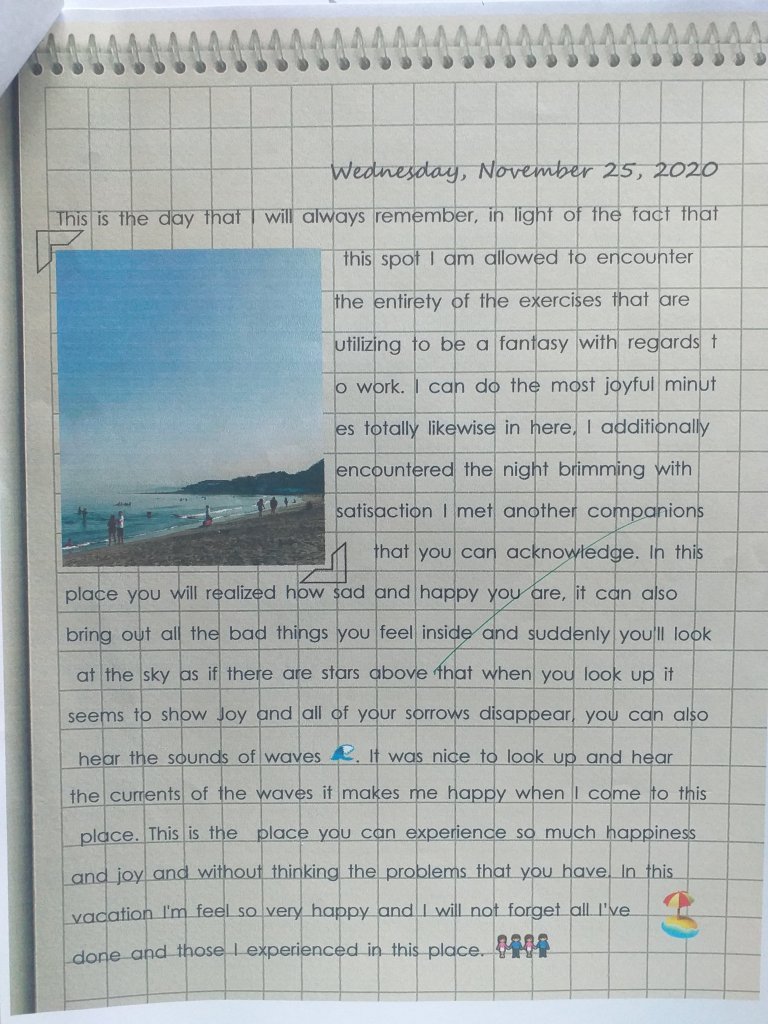 Wednesday, November 25, 2020
This is the day that I will always remember, in light of the fact that
this spot I am allowed to encounter
the entirety of the exercises that are
utilizing to be a fantasy with regards t
o work. I can do the most joyful minut
es totally likewise in here, I additionally
encountered the night brimming with
satisaction I met another companions
that you can acknowledge. In this
place you will realized how sad and happy you are, it can also
bring out all the bad things you feel inside and suddenly you'll look
at the sky as if there are stars above that when you look up it
seems to show Joy and all of your sorrows disappear, you can also
hear the sounds of waves 🌊. It was nice to look up and hear
the currents of the waves it makes me happy when I come to this
place. This is the place you can experience so much happiness
and joy and without thinking the problems that you have. In this
vacation I'm feel so very happy and I will not forget all I've
done and those I experienced in this place.